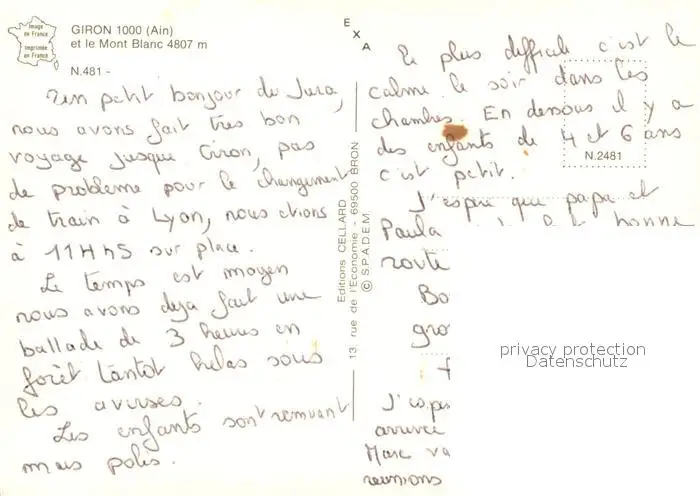 Image
en France
Imprimée
en France
GIRON 1000 (Ain)
et le Mont Blanc 4807 m
N.481 -
Un petit bonjour du Jura,
nous avons fait très bon
voyage jusque Giron, pas
de problème pour le changement
de train à Lyon, nous étions
à 11H45 sur place.
Le temps est moyen
nous avons deja fait une
ballade de 3 heures en
forêt tantot helas sous
les averses.
Les enfants sont remuant
mais polis.
EXA
Editions CELLARD
13 rue de l'Economie - 69500 BRON
© S.P.A.D.E.M.
Le plus difficile c'est le
calme le soir dans les
chambres. En dessous il y a
des enfants de 4 et 6 ans
c'est petit.
N.2481
J'espère que papa et
Paula bonne
route
Bo
gro
J'espe
arrivée
Marc va
reunions
privacy protection
Datenschutz